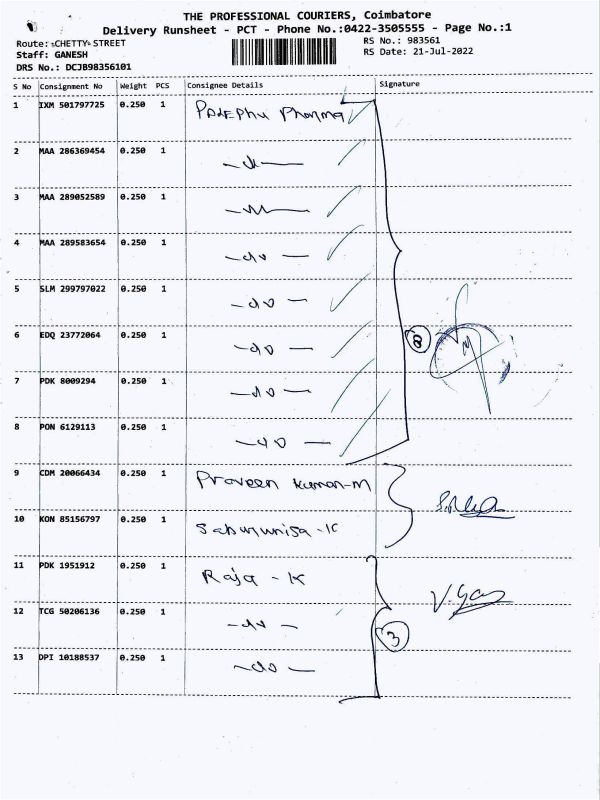 THE PROFESSIONAL COURIERS, Coimbatore
Delivery Runsheet - PCT - Phone No.:0422-3505555 - Page No.:1
Route: CHETTY STREET
RS No.: 983561
Staff: GANESH
RS Date: 21-Jul-2022
DRS No.: DCJB98356101
S No Consignment No Weight PCS Consignee Details Signature
1 IXM 501797725 0.250 1 Pharma
2 MAA 286369454 0.250 1
3 MAA 289052589 0.250 1
4 MAA 289583654 0.250 1 -do-
5 SLM 299797022 0.250 1 -do-
6 EDQ 23772064 0.250 1 -do-
7 PDK 8009294 0.250 1 -do-
8 PON 6129113 0.250 1 -do-
8
9 CDM 20066434 0.250 1 Praveen Kumar-M
10 KON 85156797 0.250 1 Saburunisa-K
11 PDK 1951912 0.250 1 Raja-K
12 TCG 50206136 0.250 1 -do-
3
13 DPI 10188537 0.250 1 -do-